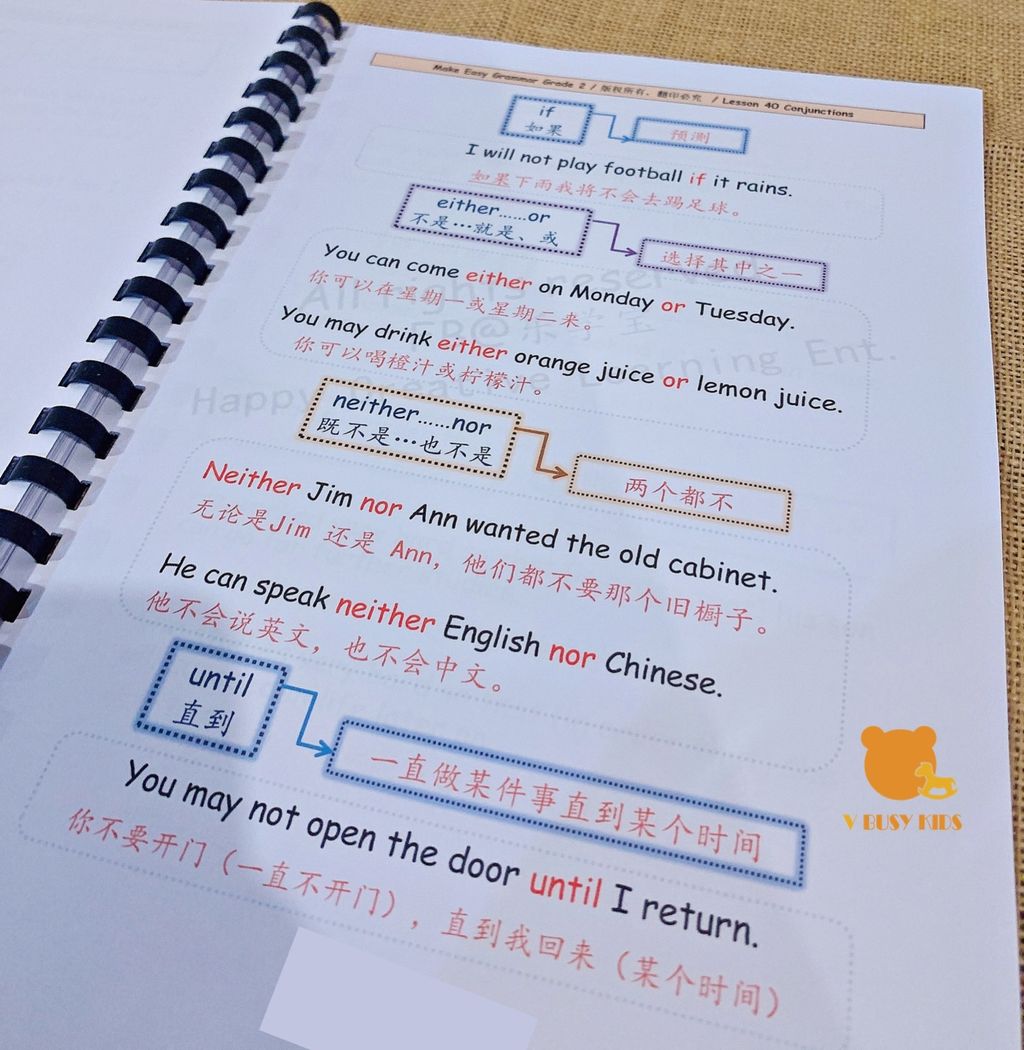 Make Easy Grammar Grade 2 / 版权所有，翻印必究 / Lesson 40 Conjunctions
if
如果
预测
I will not play football if it rains.
如果下雨我将不会去踢足球。
either……or
不是…就是、或
选择其中之一
You can come either on Monday or Tuesday.
你可以在星期一或星期二来。
You may drink either orange juice or lemon juice.
你可以喝橙汁或柠檬汁。
neither……nor
既不是…也不是
两个都不
Neither Jim nor Ann wanted the old cabinet.
无论是Jim 还是 Ann，他们都不要那个旧橱子。
He can speak neither English nor Chinese.
他不会说英文，也不会中文。
until
直到
一直做某件事直到某个时间
You may not open the door until I return.
你不要开门（一直不开门），直到我回来（某个时间）
V BUSY KIDS